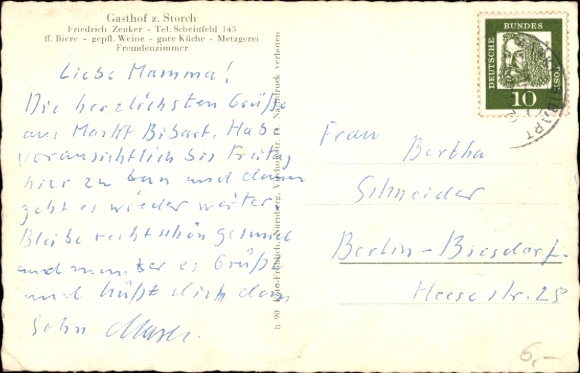 Gasthof z. Storch
Friedrich Zenker - Tel. Scheinfeld 143
ff. Biere - gepfl. Weine - gute Küche - Metzgerei
Fremdenzimmer
Liebe Mamma!
Die herzlichsten Grüße
aus Markt Bibart. Habe
voraussichtlich bis Freitag
hier zu tun und dann
geht es wieder weiter
Bleibe recht schön gesund
und munter es Grüßt
und küßt dich dein
Sohn
Nachdruck verboten
Nürnberg,
h 90
DEUTSCHE BUNDESPOST
10
BIBART
Frau Bertha
Schneider
Berlin-Biesdorf.
Heesestr. 25
6,-